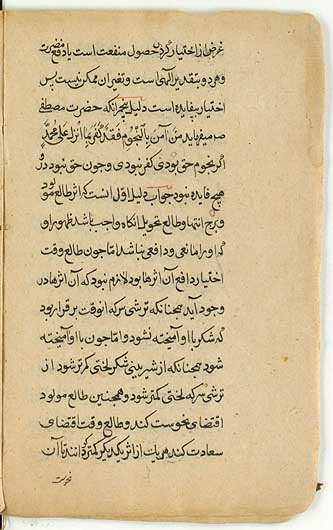 غرض از اختیار کردن حصول منفعت است یا دفع مضرت
و هر دو بتقدیر الهی است و تغیر ان ممکن نیست پس
اختیار بیفایده است دلیل پنجم آنکه حضرت مصطفی
صم میفرماید من آمن بالنجوم فقد کفر بما انزل علی محمد
اگر نجوم حق بودی کفر نبودی و چون حق نبود درو
هیچ فایده نبود جواب دلیل اول انست که اثر طالع مولود
و برج انتها و طالع تحویل انکاه واجب باشد ظهور او
که او را مانعی و دافعی نباشد اما چون طالع وقت
اختیار دافع آن اثرها بود لازم نبود که آن اثرها در
وجود آید همچنانکه ترشی سرکه انوقت برقرار بود
که شکر با او آمیخته نشود و اما چون با او آمیخته
شود همچنانکه از شیرینی شکر لختی کمتر شود از
ترشی سرکه لختی کمتر شود و همچنین طالع مولود
اقتضای نحوست کند و طالع وقت اقتضای
سعادت کند هر یک از اثر یکدیکر کمتر کردانند تا آن